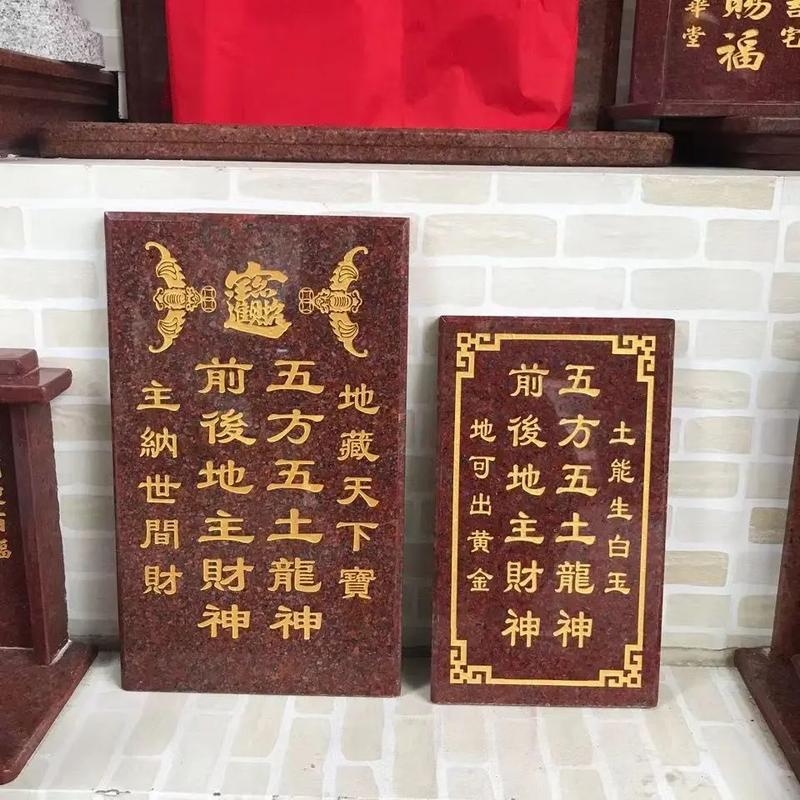 招財進寶
地藏天下寶
五方五土龍神
前後地主財神
主納世間財
土能生白玉
五方五土龍神
前後地主財神
地可出黄金
宅
賜福
華堂
福